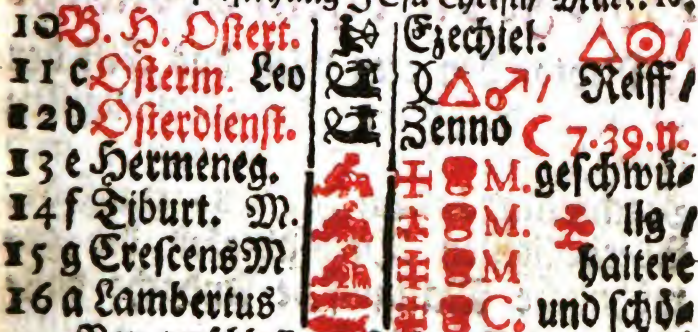 10 B. H. Ostert. Ezechiel. △☉/
11 c Osterm. Leo △♂/ Reiff/
12 d Osterdienst. Zenno ☾ 7.39.n.
13 e Hermeneg. M. geschwü⸗
14 f Tiburt. M. M. llg /
15 g Crescens M M haltere
16 a Lambertus C. und schö⸗